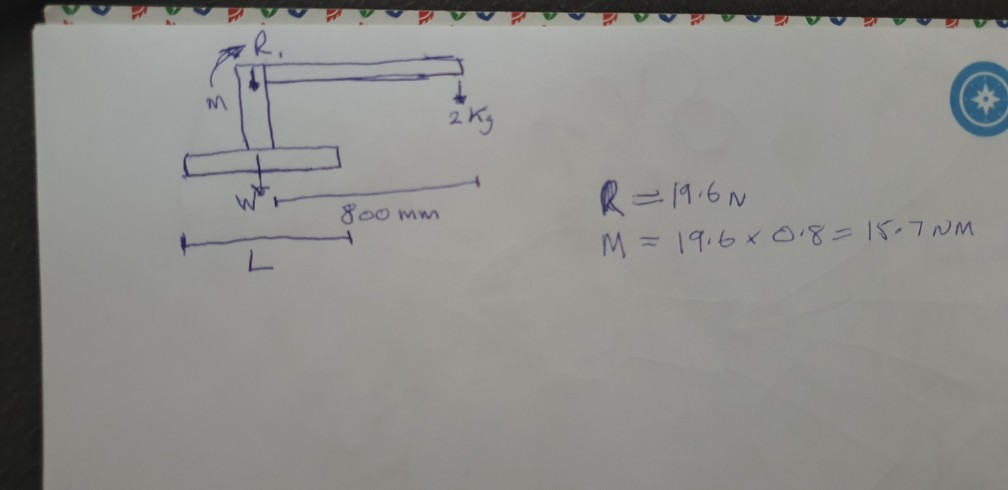 R.
M
2 Kg
W
800 mm
L
R = 19.6 N
M = 19.6 x 0.8 = 15.7 NM